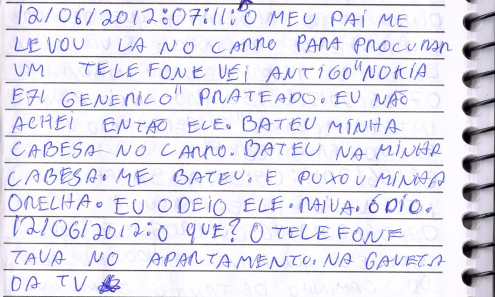 12/06/2012:07:11:O MEU PAI ME
LEVOU LA NO CARRO PARA PROCURAR
UM TELEFONE VÉI ANTIGO "NOKIA
E71 GENERICO" PRATEADO. EU NÃO
ACHEI ENTAO ELE. BATEU MINHA
CABESA NO CARRO. BATEU NA MINHA
CABESA. ME BATEU. E PUXOU MINHA
ORELHA. EU ODEIO ELE. RAIVA. ÓDIO.
12/06/2012:O QUE? O TELEFONE
TAVA NO APARTAMENTO. NA GAVETA
DA TV